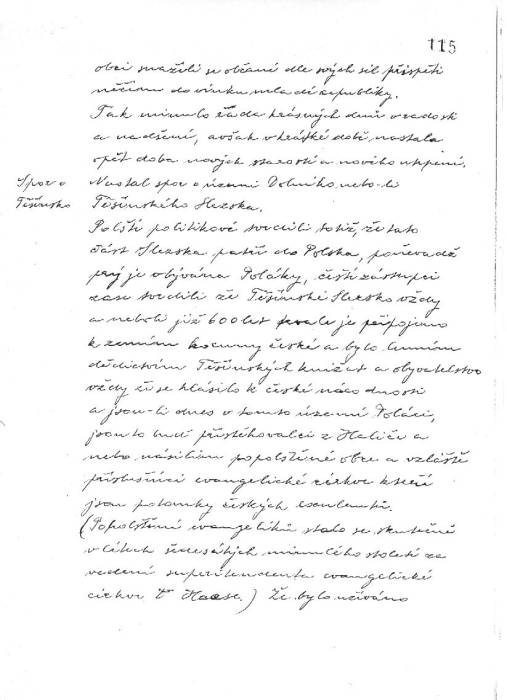 115
obci snažili se občané dle svých sil přispěti
něčím do vínku mladé republiky.
Tak minulo řada krásných dnů v radosti
a nadšení, avšak v krátké době, nastala
opět doba nových starostí a nového utrpení.
Spor o
Těšínsko
Nastal spor o území Dolního neboli
Těšínského Slezska.
Polští politikové tvrdili totiž, že tato
část Slezska patří do Polska, poněvadž
prý je obývána Poláky, čeští zástupci
zase tvrdili že Těšínské Slezsko vždy
a neboli již 600 let je připojeno
k zemím koruny české a bylo lenním
dědictvím Těšínských knížat a obyvatelstvo
vždy že se hlásilo k české národnosti
a jsou-li dnes v tomto území Poláci,
jsou to buď přistěhovalci z Haliče a
nebo násilím popolštěné obce a vzláště
příslušníci evangelické církve kteří
jsou potomky českých exulantů.
(Popolštění evangelíků stalo se skutečně
v létech šedesátých minulého století za
vedení superintendenta evangelické
církve Haase.) Že bylo užíváno